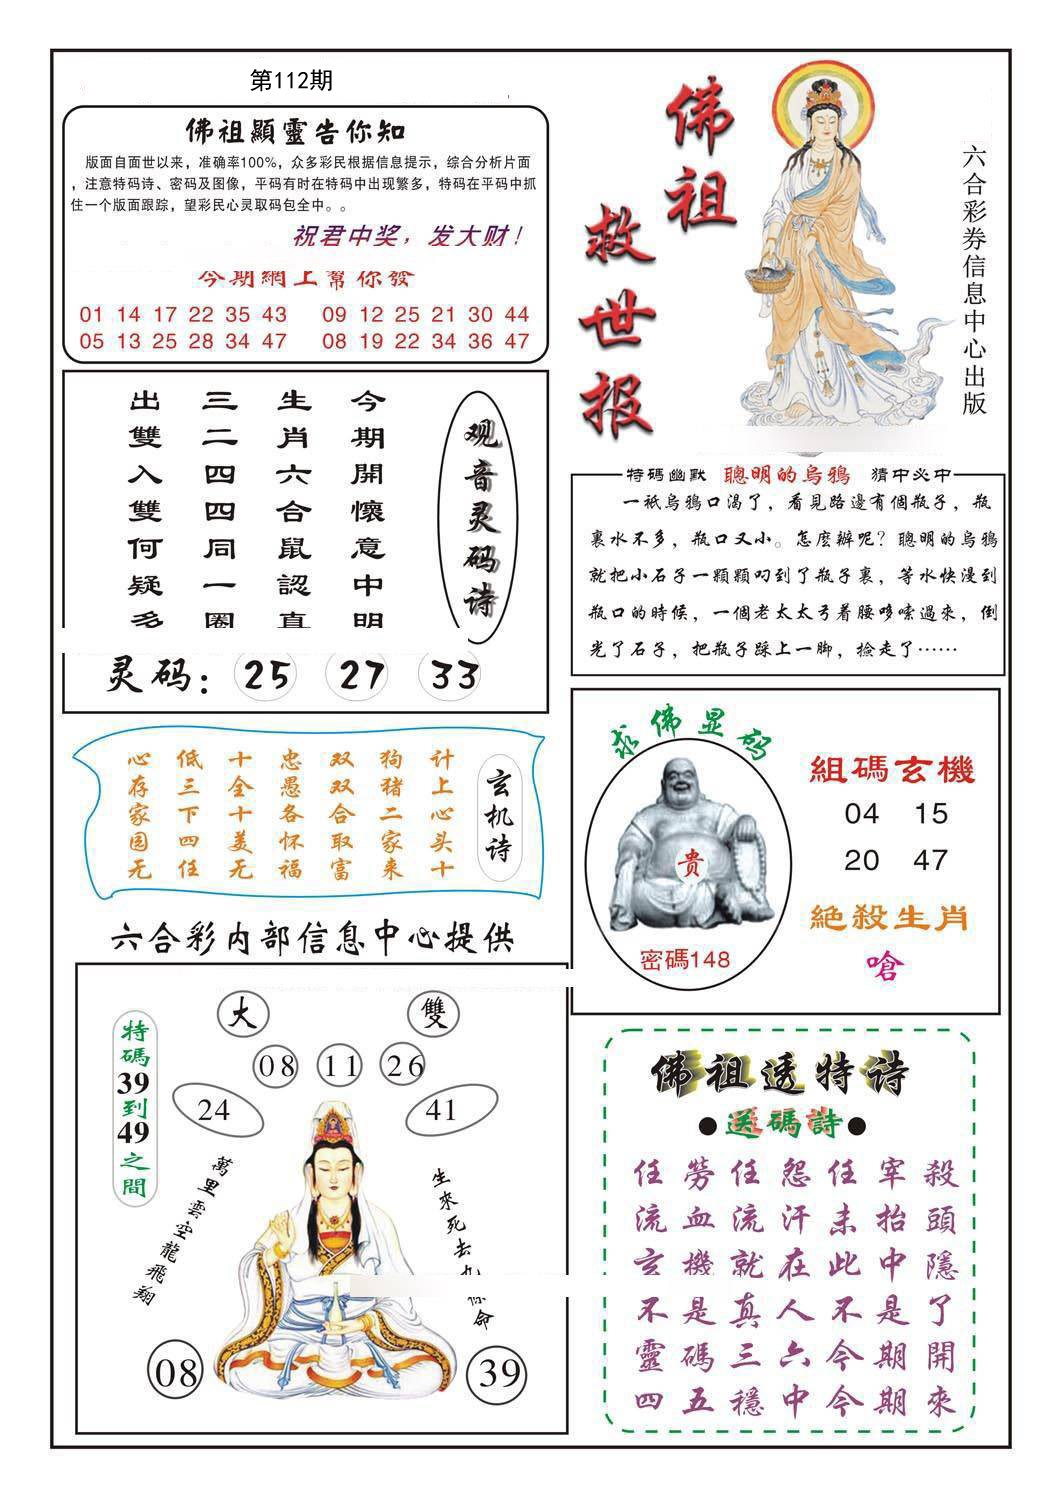 第112期
佛祖顯靈告你知
版面自面世以来，准确率100%，众多彩民根据信息提示，综合分析片面
，注意特码诗、密码及图像，平码有时在特码中出现繁多，特码在平码中抓
住一个版面跟踪，望彩民心灵取码包全中。。
祝君中奖，发大财！
今期網上幫你發
01 14 17 22 35 43
09 12 25 21 30 44
05 13 25 28 34 47
08 19 22 34 36 47
佛祖
救世报
六合彩券信息中心出版
观音灵码诗
今期開懷意中明
生肖六合鼠認真
三二四四同一圈
出雙入雙何疑多
灵码：25 27 33
特碼幽默 聰明的烏鴉 猜中必中
一衹烏鴉口渴了，看見路邊有個瓶子，瓶
裏水不多，瓶口又小。怎麼辦呢？聰明的烏鴉
就把小石子一顆顆叼到了瓶子裏，等水快漫到
瓶口的時候，一個老太太弓着腰哆嗦過來，倒
光了石子，把瓶子踩上一脚，捡走了……
玄机诗
计上心头十
狗猪二家来
双双合取富
忠愚各怀福
十全十美无
低三下四任
心存家园无
求佛显码
贵
密碼148
組碼玄機
04 15
20 47
絕殺生肖
嗆
六合彩内部信息中心提供
特碼39到49之間
大
雙
08
11
26
24
41
萬里雲空龍飛翔
生來死去九條命
08
39
佛祖透特诗
●送碼詩●
任勞任怨任宰殺
流血流汗未抬頭
玄機就在此中隱
不是真人不是了
靈碼三六今期開
四五穩中今期來